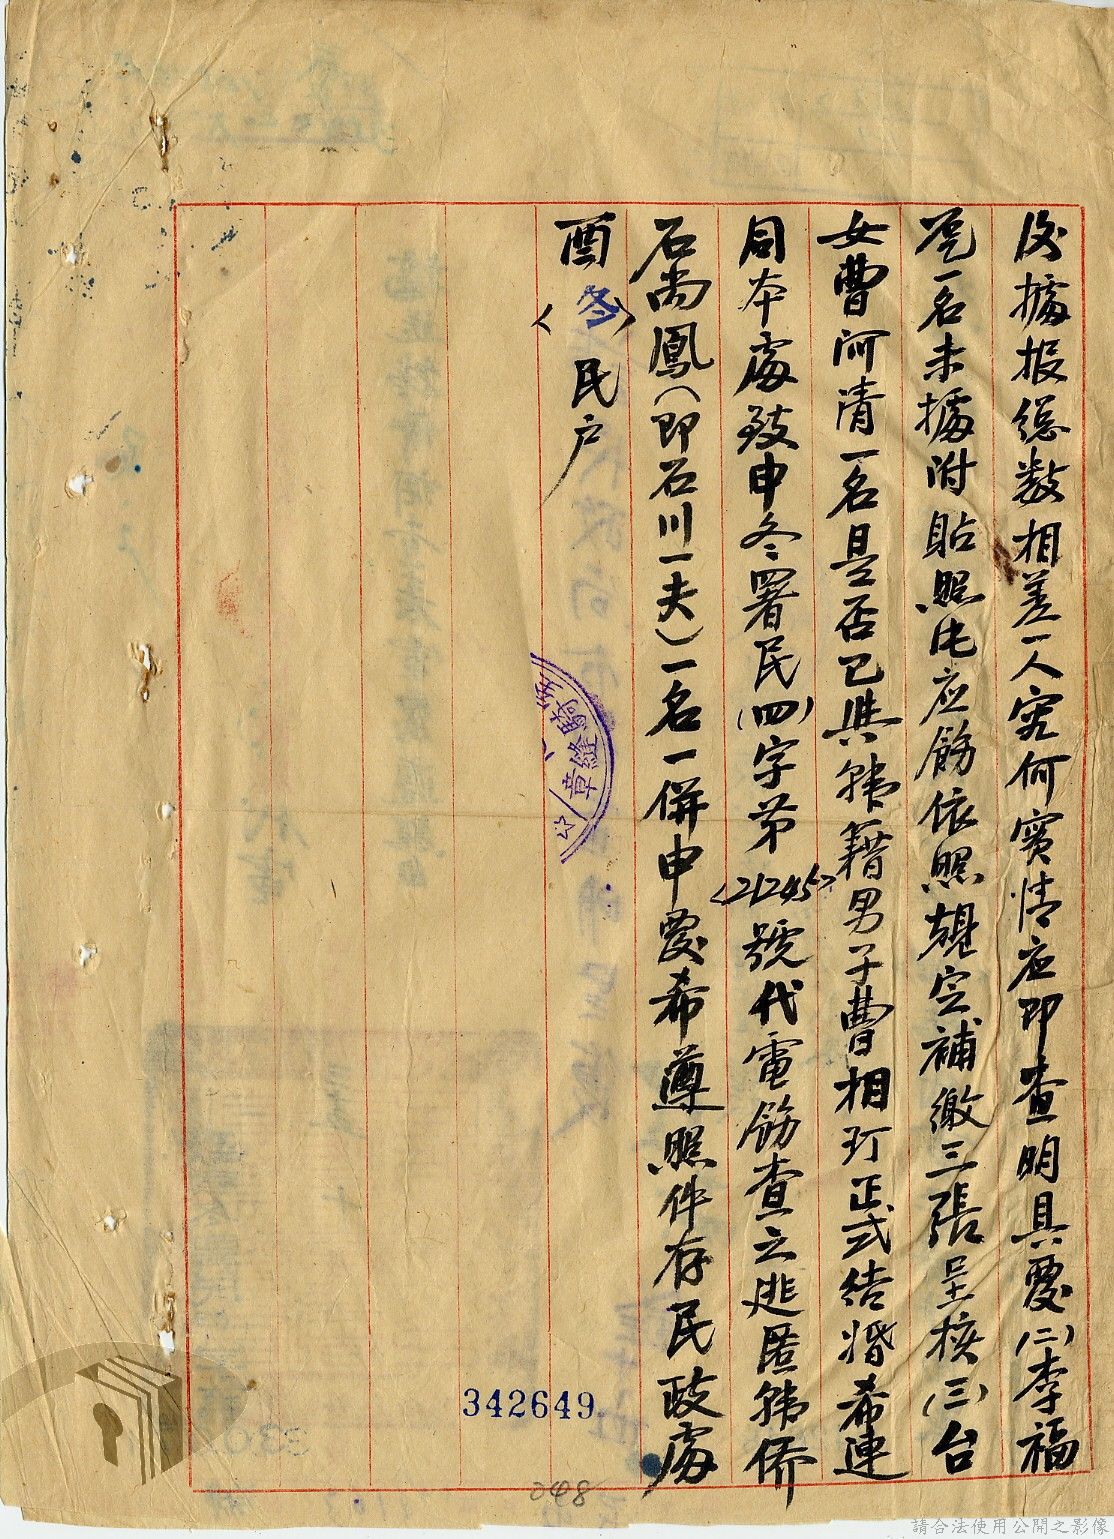 後據报總数相差一人究何實情应即查明具覆(二)李福
花一名未據附貼照片应飭依照規定補繳三張呈核(三)台
女曹阿清一名是否已與韓籍男子曹相玎正式结婚希連
同本處致申冬署民(四)字第<21245>號代電飭查之逃匿韓僑
石尚鳳(即石川一夫)一名一併申覆希遵照件存民政處
酉<冬>民户
縫章
342649
048
請合法使用公開之影像